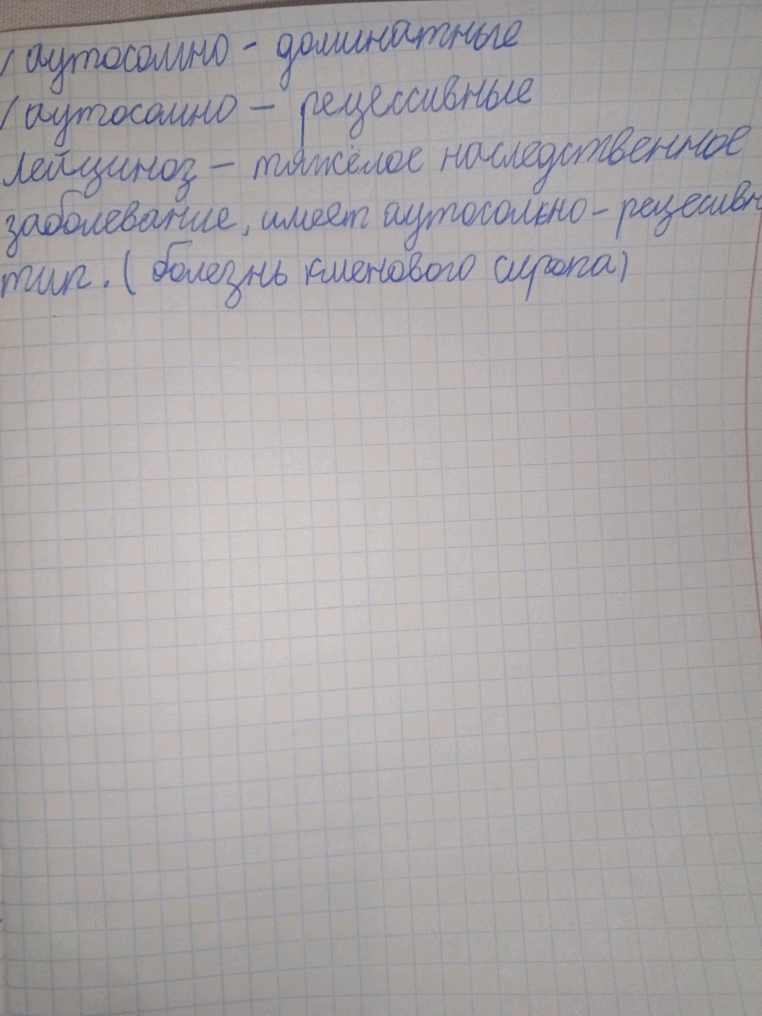 ) аутосомно - доминатные
) аутосомно - рецессивные
лейциноз - тяжёлое наследственное
заболевание, имеет аутосомно - рецесивн
тип. (болезнь кменового сиропа)